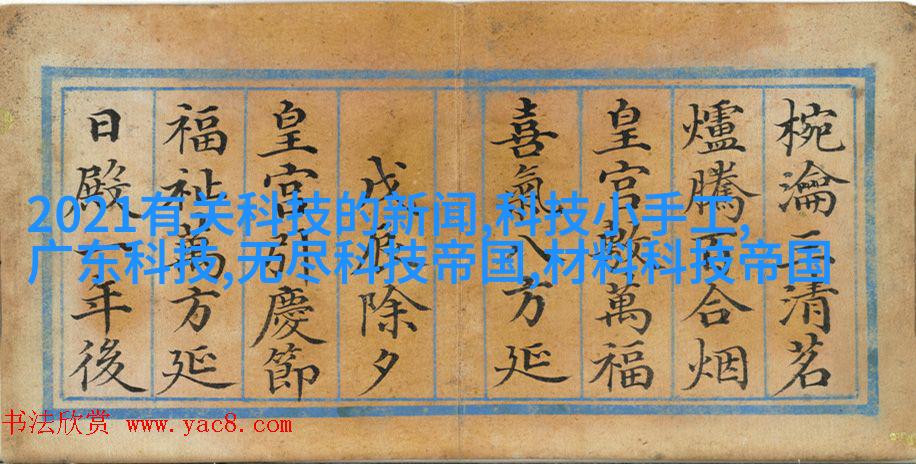 椀瀹三清茗
爐騰百合烟
皇宮敷萬福
喜氣八方延
戊辰除夕
皇宮引慶節
福祉萬方延
日殿一年後
2021有关科技的新闻,科技小手工,
广东科技,无尽科技帝国,材料科技帝国
书法欣赏 www.yac8.com